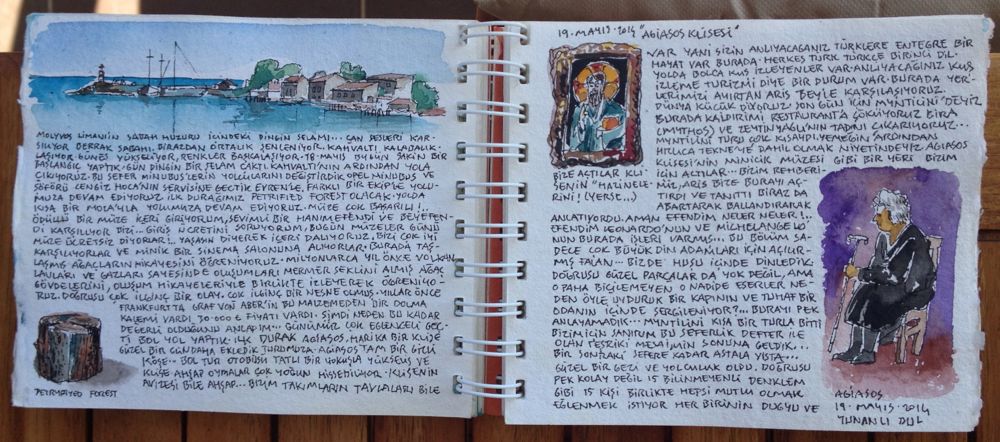 MOLYVOS LİMANIN SABAH HUZURU İÇİNDEKİ DİNGİN SELAMI... ÇAN SESLERİ KAR-
ŞILIYOR BERRAK SABAHI. BİRAZDAN ORTALIK ŞENLENİYOR. KAHVALTI, KALABALIK-
LAŞIYOR GÜNEŞ YÜKSELİYOR, RENKLER BAŞKALAŞIYOR. 19 MAYIS BUGÜN SAKİN BİR
BAŞLANGIÇ YAPTIK. GÜN DİNGİN BİR SELAM ÇAKTI. KAHVALTI'NIN ARDINDAN YOLA
ÇIKIYORUZ. BU SEFER MİNUBÜS'LERİN YOLCULARINI DEĞİŞTİRDİK OPEL MİNUBÜS VE
ŞÖFÖRÜ CENGİZ HOCA'NIN SERVİSİNE GEÇTİK EVREN'LE. FARKLI BİR EKİPLE YOLU-
MUZA DEVAM EDİYORUZ. İLK DURAĞIMIZ PETRIFIED FOREST OLACAK. YOLDA
KISA BİR MOLA'YLA YOLUMUZA DEVAM EDİYORUZ. MÜZE ÇOK BAŞARILI!..
ÖDÜLLÜ BİR MÜZE İÇERİ GİRİYORUM, SEVİMLİ BİR HANIMEFENDİ VE BEYEFEN-
Dİ KARŞILIYOR BİZİ... GİRİŞ ÜCRETİNİ SORUYORUM, BUGÜN MÜZELER GÜNÜ
MÜZE ÜCRETSİZ DİYORLAR!.. YAŞASIN DİYEREK İÇERİ DALIYORUZ. BİZİ ÇOK İYİ
KARŞILIYORLAR VE MİNİK BİR SİNEMA SALONUNA ALIYORLAR. BURADA TAŞ-
LAŞMIŞ AĞAÇLARIN HİKAYESİNİ ÖĞRENİYORUZ. MİLYONLARCA YIL ÖNCE VOLKAN
LAVLARI VE GAZLARI SAYESİNDE OLUŞUMLARI MERMER ŞEKLİNİ ALMIŞ AĞAÇ
GÖVDELERİNİ, OLUŞUM HİKAYELERİYLE BİRLİKTE İZLEYEREK ÖĞRENİYO-
RUZ. DOĞRUSU ÇOK İLGİNÇ BİR OLAY. ÇOK İLGİNÇ BİR NESNE OLMUŞ. YILLAR ÖNCE
FRANKFURT'TA GRAF VON ABER'İN BU MALZEMEDEN BİR DOLMA
KALEMİ VARDI 30.000 € FİYATI VARDI. ŞİMDİ NEDEN BU KADAR
DEĞERLİ OLDUĞUNU ANLADIM... GÜNÜMÜZ ÇOK EĞLENCELİ GEÇ-
Tİ BOL YOL YAPTIK. İLK DURAK AGİASOS, HARİKA BİR KİLİSE
GÜZEL BİR GÜNDAHA EKLEDİK TURUMUZA. AGİASOS TAM BİR GİZLİ
KÖŞE. BOL TUR OTOBÜSÜ TATLI BİR YOKUŞU YÜKSELİŞ VE
KİLİSE AHŞAP OYMALAR ÇOK YOĞUN HİSSEDİLİYOR. KİLİSENİN
AVİZESİ BİLE AHŞAP... BİZİM TAKIMLARIN TAVLALARI BİLE
PETRYFIYED FOREST
19. MAYIS. 2014 "AGİASOS KLİSESİ"
VAR YANİ SİZİN ANLIYACAĞINIZ TÜRKLERE ENTEGRE BİR
HAYAT VAR BURADA. HERKES TÜRK TÜRKÇE BİRİNCİ DİL.
YOLDA BOLCA KUŞ İZLEYENLER VAR. ANLIYACAĞINIZ KUŞ
İZLEME TURİZMİ DİYE BİR DURUM VAR. BURADA YER-
LERİMİZİ AYIRTAN ARİS BEYLE KARŞILAŞIYORUZ.
DÜNYA KÜÇÜK DİYORUZ. SON GÜN İÇİN MYNTİLİNİ 'DEYİZ
BURADA KALDIRIMI RESTAURANT'A ÇÖKÜYORUZ BİRA
(MYTHOS) VE ZEYTİNYAĞLI'NIN TADINI ÇIKARIYORUZ...
MYNTİLİNİ TURU ÇOK KISAYDI, YEMEĞİN ARDINDAN
HIZLICA TEKNE'YE DAHİL OLMAK NİYETİNDEYİZ. AGİASOS
KLİSESİ'NİN MİNİCİK MÜZESİ GİBİ BİR YERİ BİZİM
İÇİN AÇTILAR... BİZİM REHBERİ-
MİZ, ARİS BİZE BURAYI AÇ-
TIRDI VE TANITTI BİRAZ DA
ABARTARAK BALLANDIRARAK
BİZE AÇTILAR KLİ
SENİN "HAZİNELE-
RİNİ (YERSE...)
ANLATIYORDU. AMAN EFENDİM NELER NELER!..
EFENDİM LEONARDO'NUN VE MICHELANGELO'
NUN BURADA İŞLERİ VARMIŞ... BU BÖLÜM SA-
DECE ÇOK BÜYÜK DİN ADAMLARI İÇİN AÇILIR-
MIŞ FALAN... BİZDE HUŞU İÇİNDE DİNLEDİK.
DOĞRUSU GÜZEL PARÇALAR DA YOK DEĞİL, AMA
O PAHA BİÇİLEMEYEN O NADİDE ESERLER NE-
DEN ÖYLE UYDURUK BİR KAPININ VE TUHAF BİR
ODANIN İÇİNDE SERGİLENİYOR?... BURAYI PEK
ANLAYAMADIK. MYNTİLİNİ KISA BİR TURLA BİTTİ
BİZİM İÇİN SANIRIM BU SEFERLİK DEFTER İLE
OLAN TEŞRİKİ MESAİMİN SONUNA GELDİK...
BİR SONRAKİ SEFERE KADAR ASTALA VİSTA...
GÜZEL BİR GEZİ VE YOLCULUK OLDU. DOĞRUSU
PEK KOLAY DEĞİL 15 BİLİNMEYENLİ DENKLEM
GİBİ 15 KİŞİ BİRLİKTE HEPSİ MUTLU OLMAK
EĞLENMEK İSTİYOR HER BİRİNİN DUYGU VE
AGİASOS
19. MAYIS. 2014
YUNANLI DUL